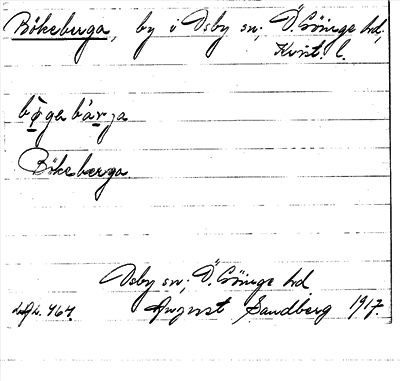 Bökeberga, by i Osby sn; Ö. Göinge hd,
Krist. l.
bø̱ga bàrja
Bökebærga.
Osby sn; Ö. Göinge hd
August Sandberg 1917.